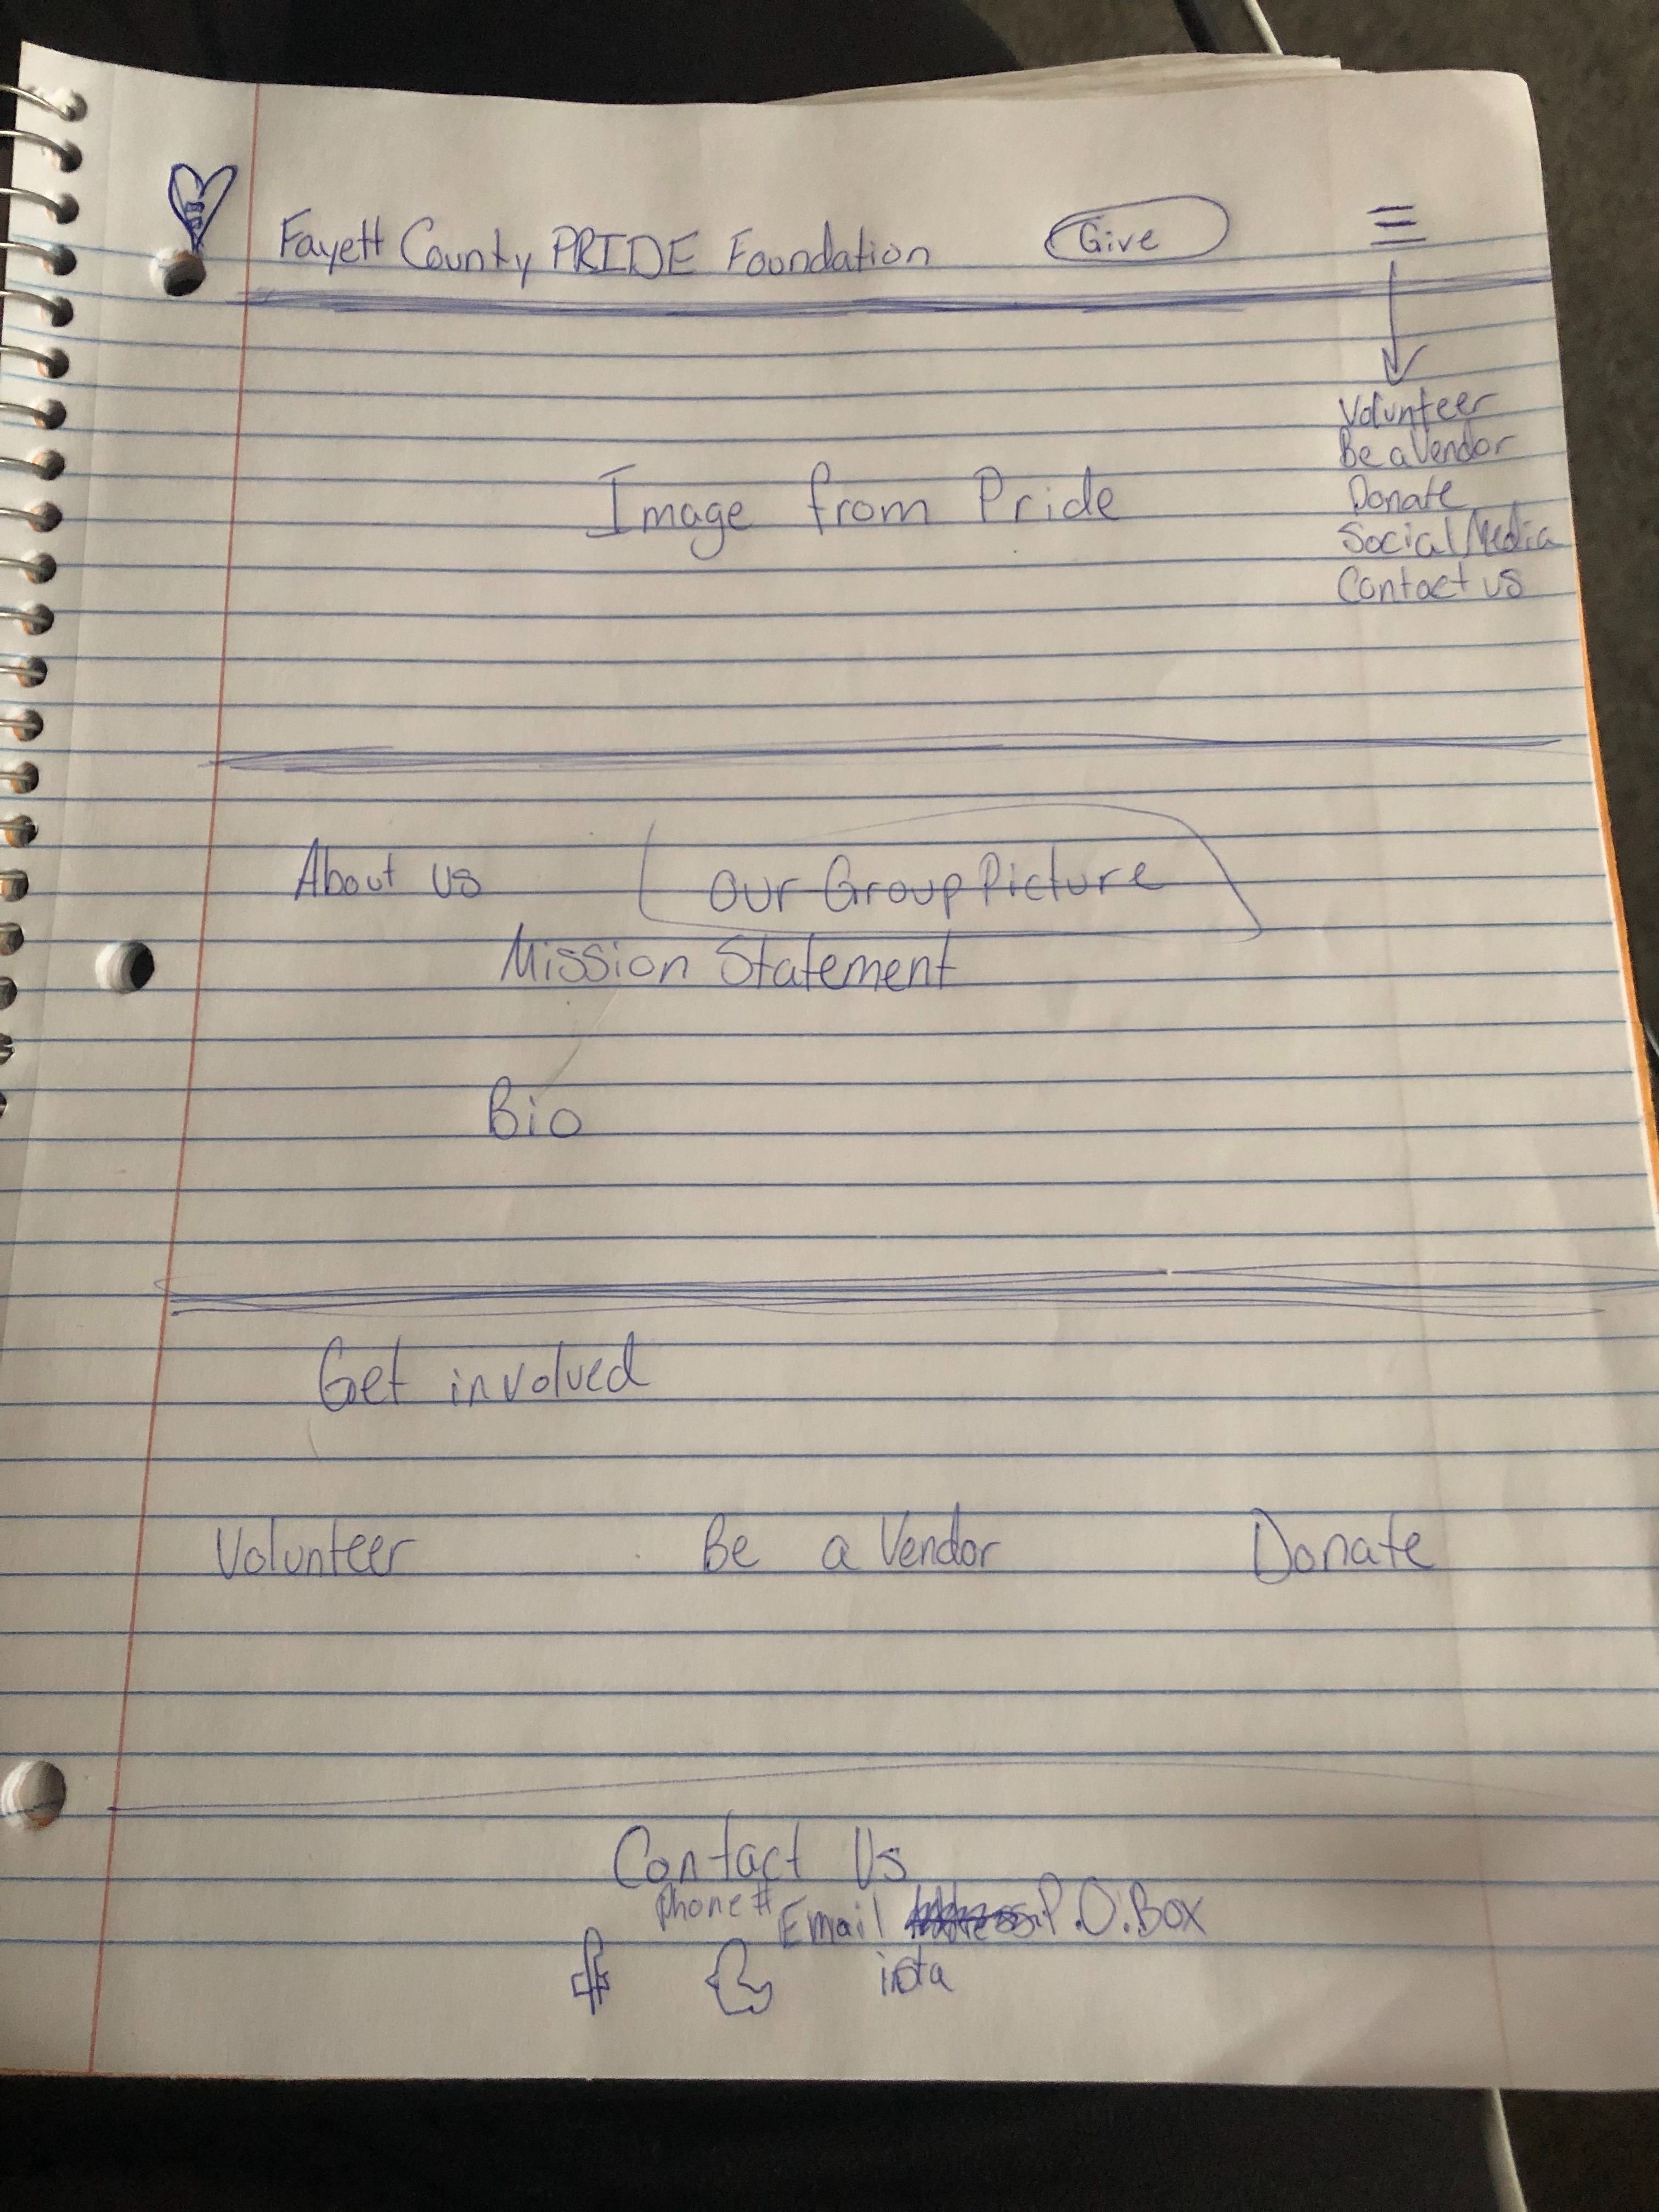 Fayett County PRIDE Foundation
Give
Volunteer
Be a Vendor
Donate
Social Media
Contact us
Image from Pride
About us
our Group Picture
Mission Statement
Bio
Get involved
Volunteer
Be a Vendor
Donate
Contact Us
Phone #
Email P.O.Box
insta